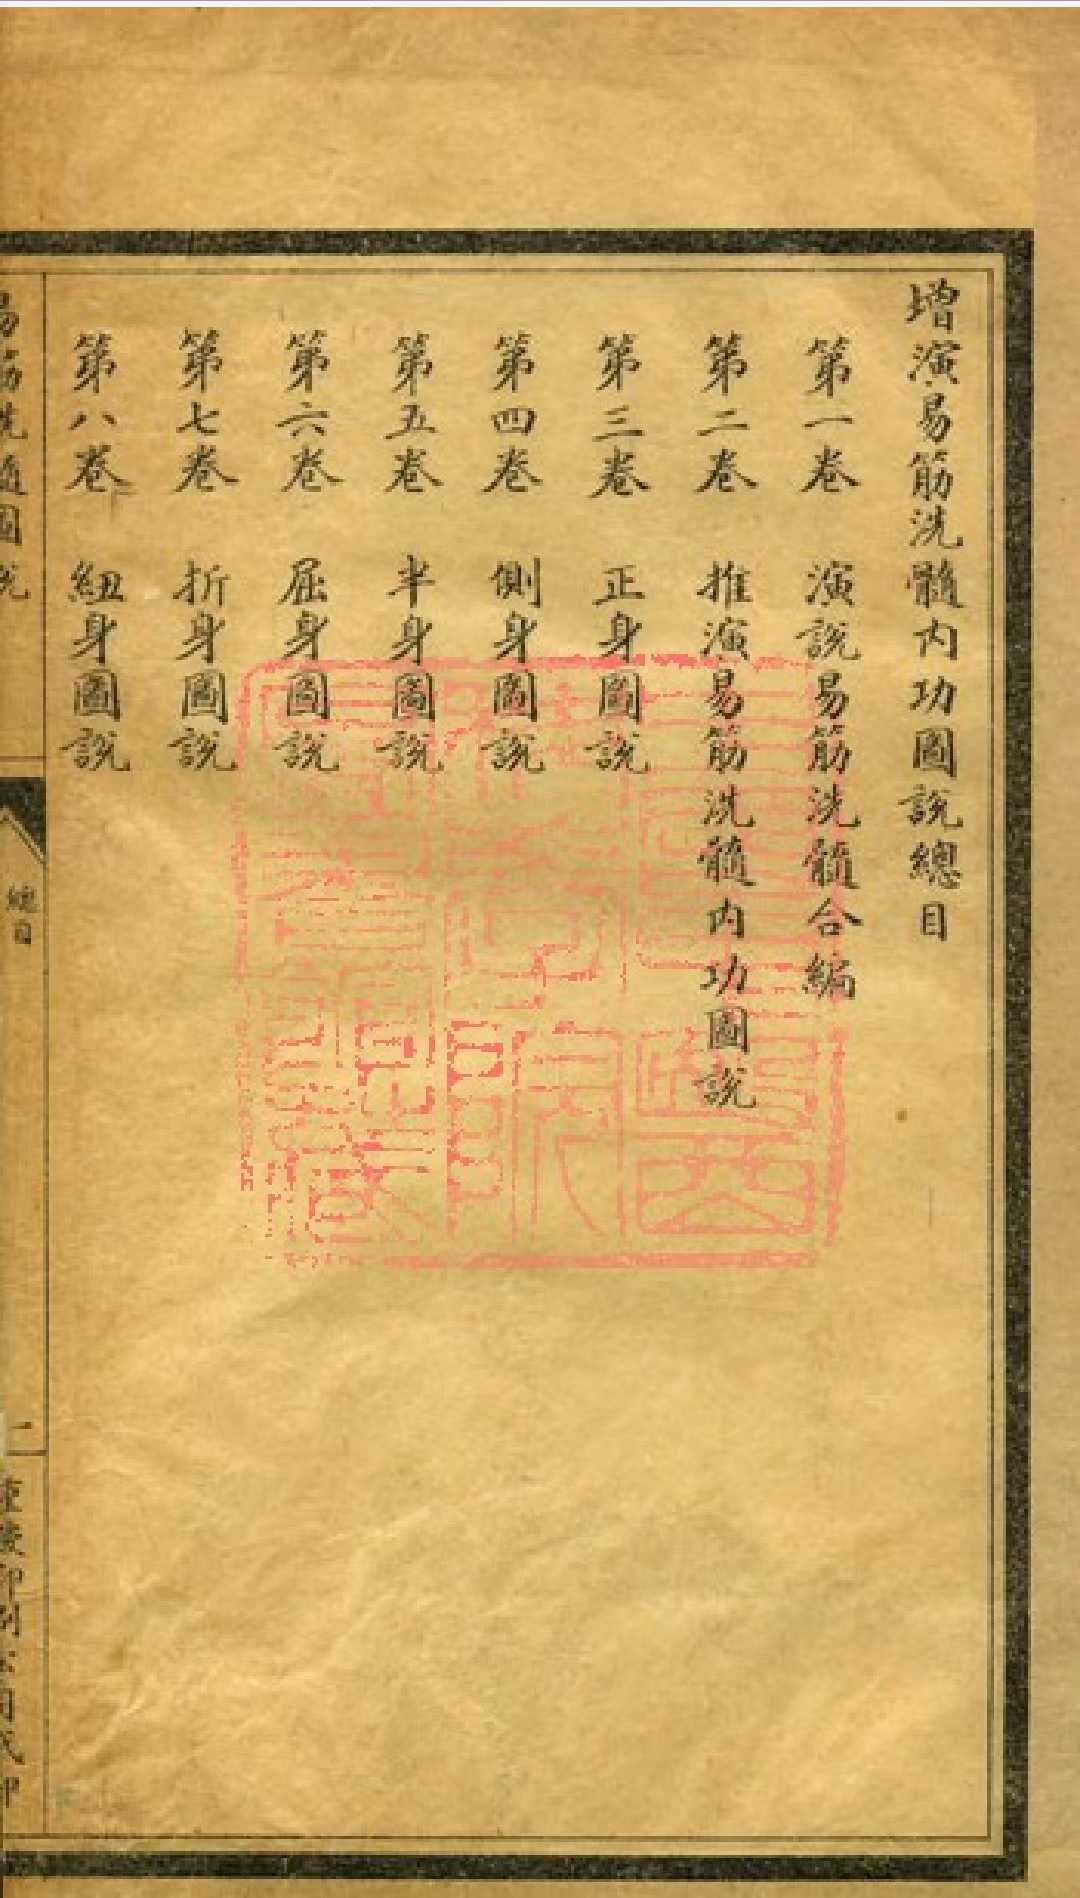 增演易筋洗髓內功圖說總目
第一卷 演說易筋洗髓合編
第二卷 推演易筋洗髓內功圖說
第三卷 正身圖說
第四卷 側身圖說
第五卷 半身圖說
第六卷 屈身圖說
第七卷 折身圖說
第八卷 紐身圖說
易筋洗髓圖說
總目
一